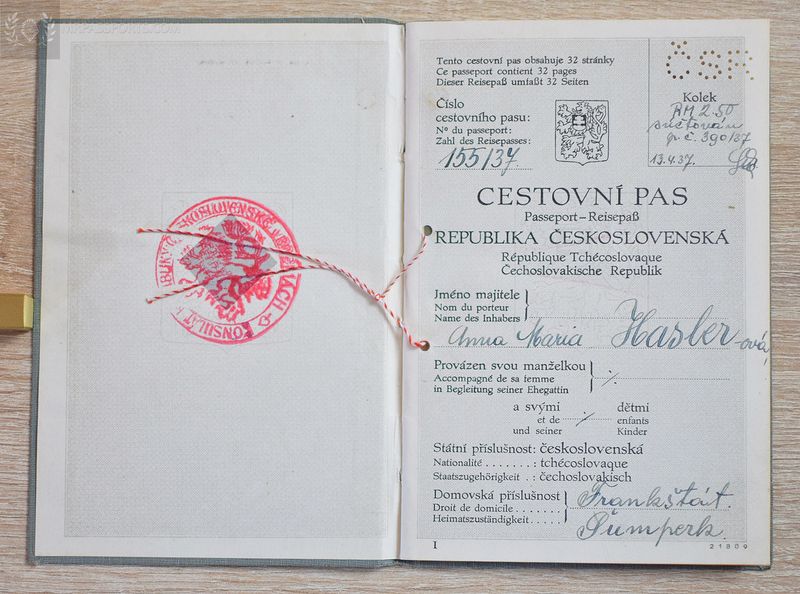 MRPASSPORTS.COM
KONSULÁT REPUBLIKY ČESKOSLOVENSKÉ V DRÁŽĎANECH
Tento cestovní pas obsahuje 32 stránky
Ce passeport contient 32 pages
Dieser Reisepaß umfaßt 32 Seiten
ČSR
Číslo
cestovního pasu:
Nº du passeport:
Zahl des Reisepasses:
155/37
Kolek
RM 2.50
súčtován
p.č. 390/37
13.4.37.
CESTOVNÍ PAS
Passeport–Reisepaß
REPUBLIKA ČESKOSLOVENSKÁ
République Tchécoslovaque
Čechoslovakische Republik
Jméno majitele
Nom du porteur
Name des Inhabers
Anna Maria Hasler-ová
Provázen svou manželkou
Accompagné de sa femme
in Begleitung seiner Ehegattin
a svými dětmi
et de enfants
und seiner Kinder
Státní příslušnost: československá
Nationalité.......: tchécoslovaque
Staatszugehörigkeit .: čechoslovakisch
Domovská příslušnost
Droit de domicile.....
Heimatszuständigkeit.....
Frankštát.
Šumperk.
I
21809